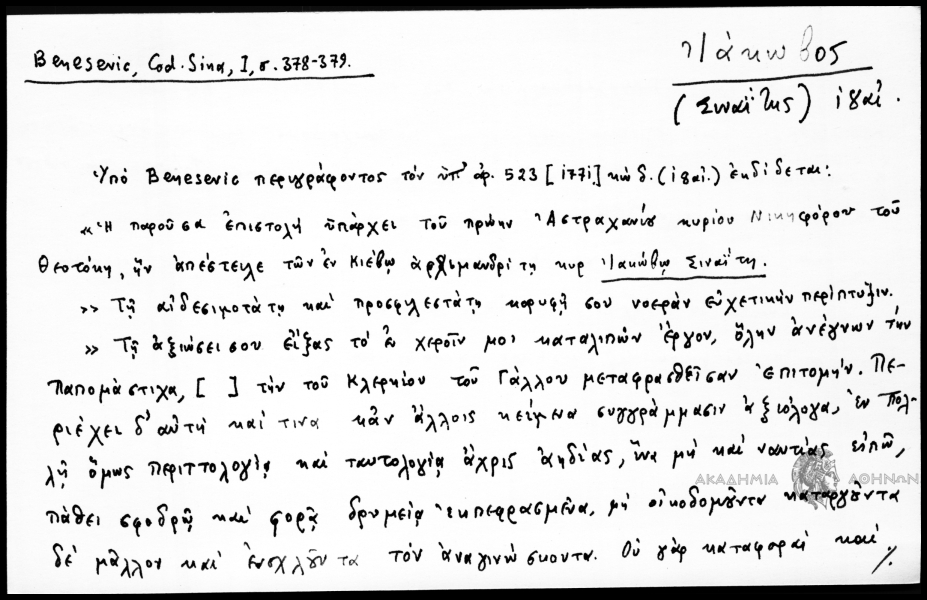 Benesevic, Cod. Sina, I, σ. 378-379.
Ἰάκωβος
(Σιναΐτης) ιηαἰ.
Ὑπὸ Benesevic περιγράφοντος τὸν ὑπ' ἀρ. 523 [1771] κώδ. (ιηαἰ.) ἐκδίδεται:
«Ἡ παροῦσα ἐπιστολὴ ὑπάρχει τοῦ πρώην Ἀστραχανίου κυρίου Νικηφόρου τοῦ
Θεοτόκη, ἣν ἀπέστειλε τῶν ἐν Κιέβῳ ἀρχιμανδρίτῃ κυρ Ἰακώβῳ Σιναΐτῃ.
>> Τῇ αἰδεσιμοτάτῃ καὶ προσφιλεστάτῃ κορυφῇ σου νοερὰν εὐχετικὴν περίπτυξιν.
>> Τῇ ἀξιώσει σου εἴξας τὸ ἐν χεροῖν μοι καταλιπὼν ἔργον, ὅλην ἀνέγνων τὴν
Παπομάστιχα, [ ] τὴν τοῦ Κλερκίου τοῦ Γάλλου μεταφρασθεῖσαν ἐπιτομήν. Πε-
ριέχει δ' αὐτὴ καί τινα κἂν ἄλλοις κείμενα συγγράμμασιν ἀξιόλογα, ἐν πολ-
λῇ ὅμως περιττολογίᾳ καὶ ταυτολογίᾳ ἄχρις ἀηδίας, ἵνα μὴ καὶ ναυτίας εἰπῶ,
πάθει σφοδρῷ καὶ φορᾷ δριμείᾳ ἐκπεφρασμένα, μὴ οἰκοδομοῦντα καταργοῦντα
δὲ μᾶλλον καὶ ἐνοχλοῦντα τὸν ἀναγινώσκοντα. Οὐ γὰρ καταφοραὶ καὶ
./.
ΑΚΑΔΗΜΙΑ ΑΘΗΝΩΝ